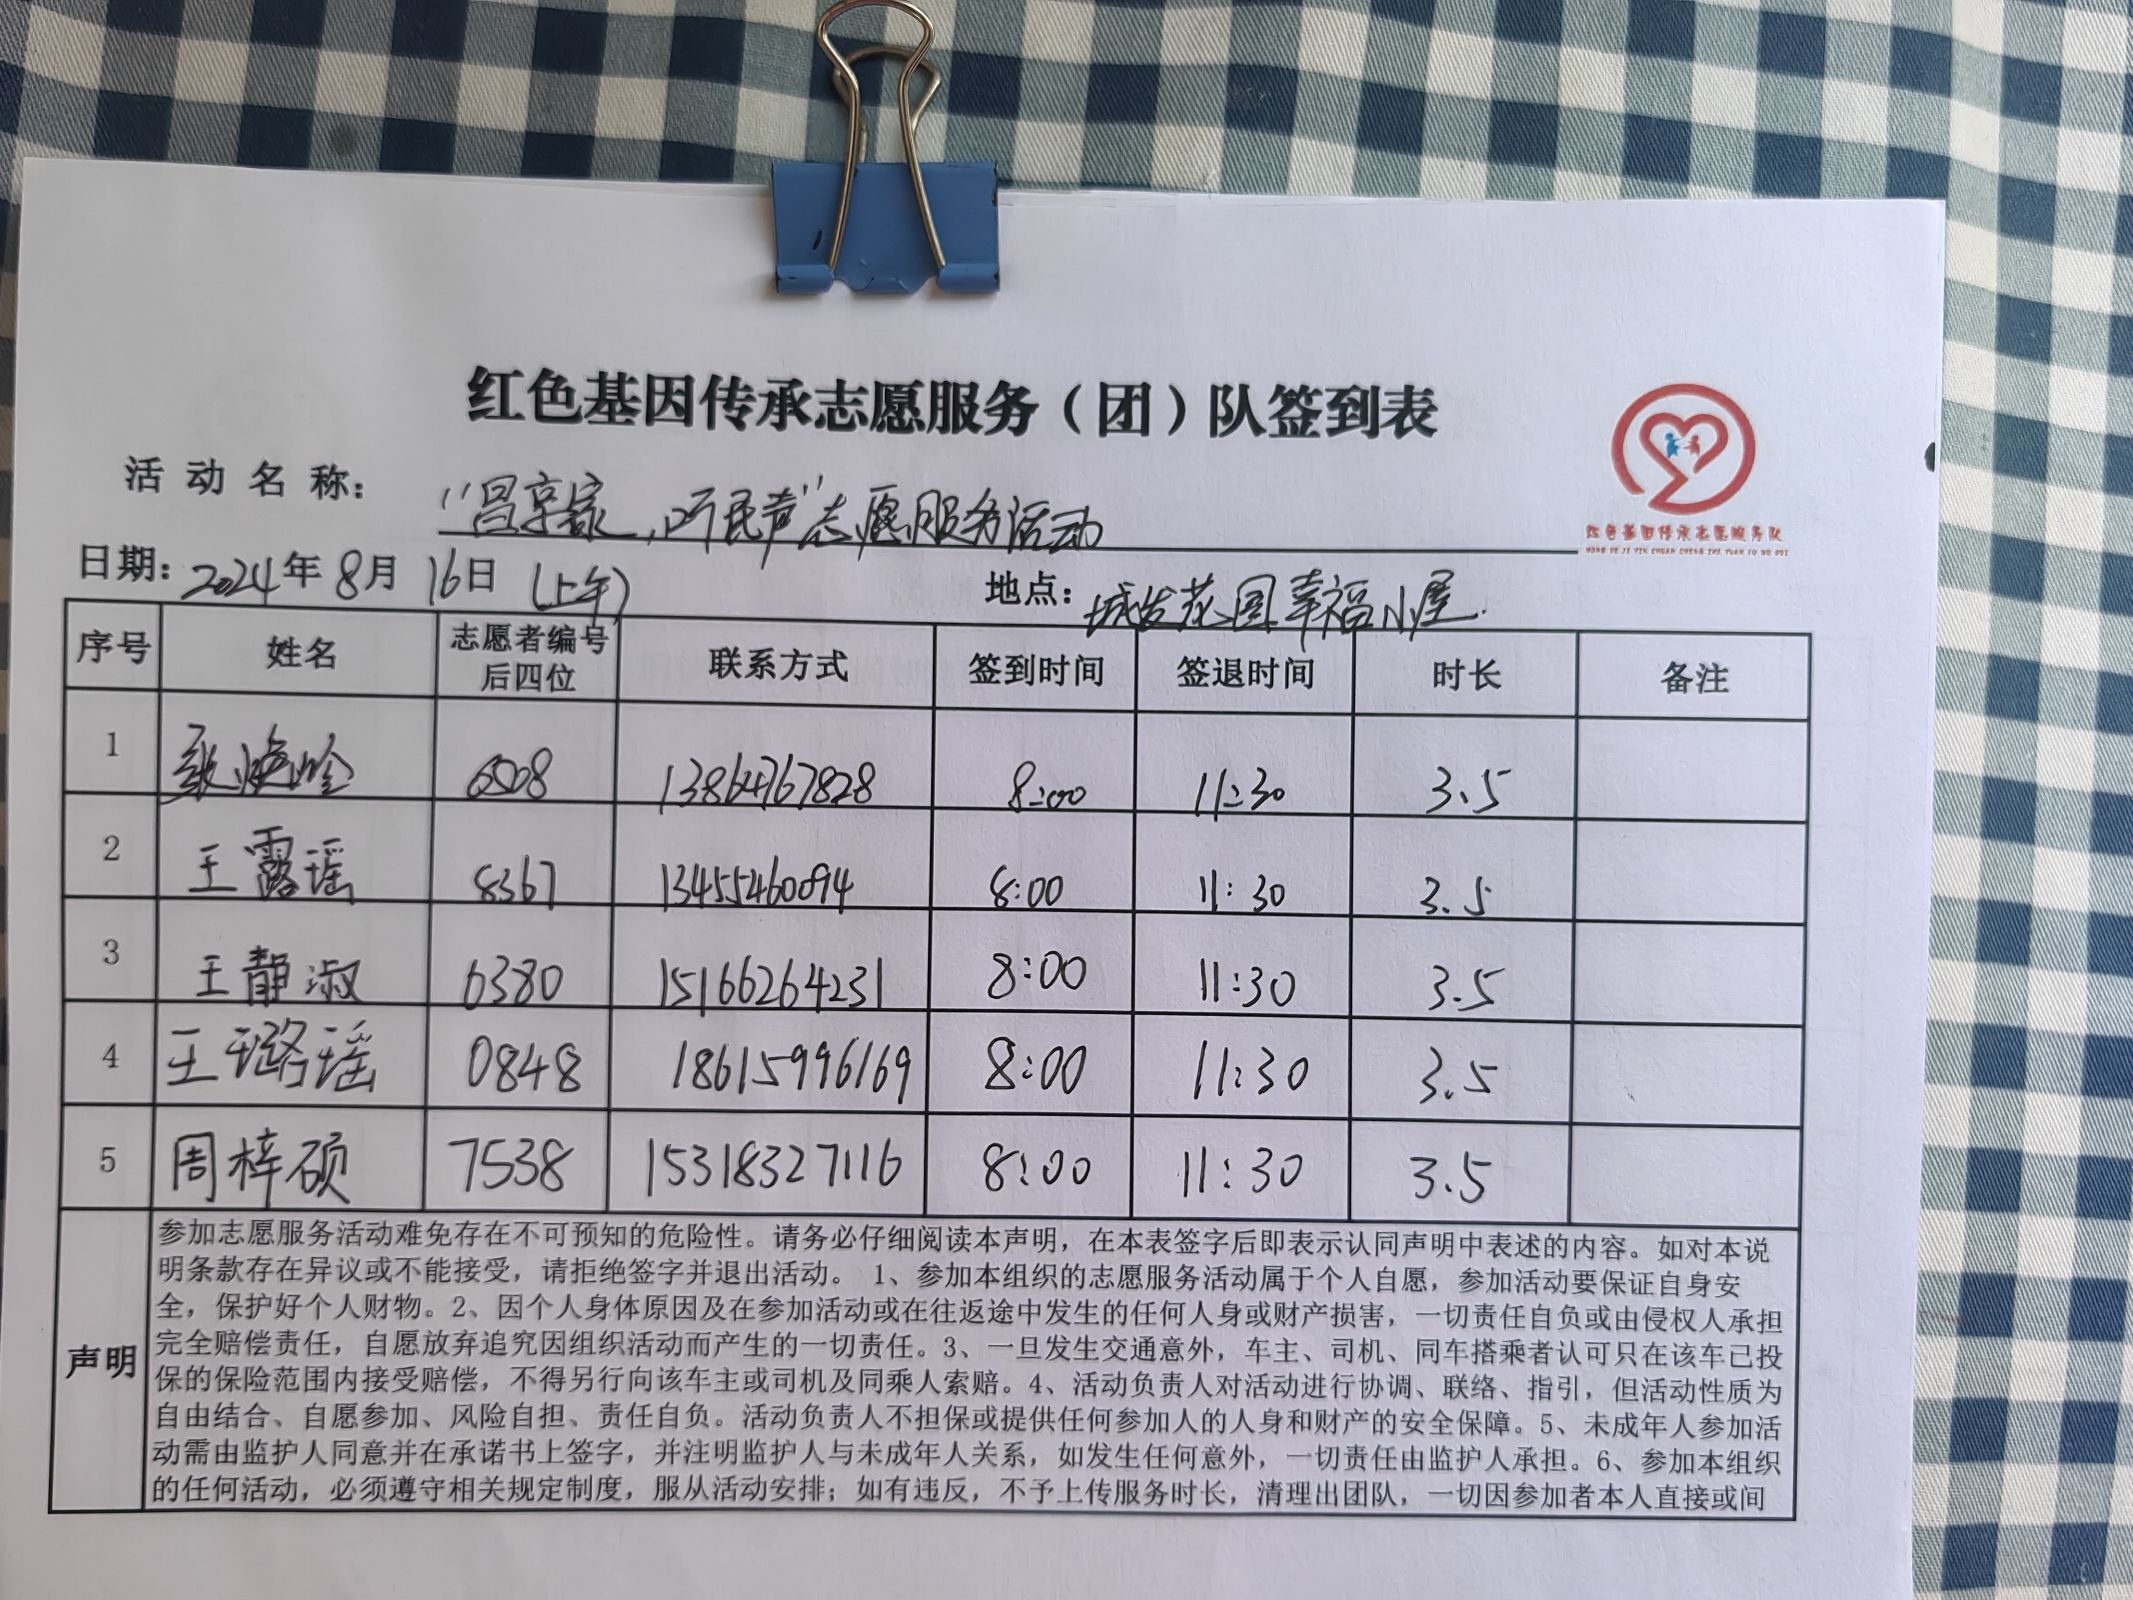 红色基因传承志愿服务（团）队签到表
活动名称： “昌享家，听民声”志愿服务活动
红色基因传承志愿服务队
HONG SE JI YIN CHUAN CHENG ZHI YUAN FU WU DUI
日期：2024年8月16日（上午） 地点：城发花园幸福小屋.
序号 姓名 志愿者编号后四位 联系方式 签到时间 签退时间 时长 备注
1 6508 13864767828 8:00 11:30 3.5
2 王露瑶 8367 13455460094 8:00 11:30 3.5
3 王静淑 6380 15166264231 8:00 11:30 3.5
4 王璐瑶 0848 18615996169 8:00 11:30 3.5
5 周梓硕 7538 15318327116 8:00 11:30 3.5
声明
参加志愿服务活动难免存在不可预知的危险性。请务必仔细阅读本声明，在本表签字后即表示认同声明中表述的内容。如对本说
明条款存在异议或不能接受，请拒绝签字并退出活动。 1、参加本组织的志愿服务活动属于个人自愿，参加活动要保证自身安
全，保护好个人财物。2、因个人身体原因及在参加活动或在往返途中发生的任何人身或财产损害，一切责任自负或由侵权人承担
完全赔偿责任，自愿放弃追究因组织活动而产生的一切责任。3、一旦发生交通意外，车主、司机、同车搭乘者认可只在该车已投
保的保险范围内接受赔偿，不得另行向该车主或司机及同乘人索赔。4、活动负责人对活动进行协调、联络、指引，但活动性质为
自由结合、自愿参加、风险自担、责任自负。活动负责人不担保或提供任何参加人的人身和财产的安全保障。5、未成年人参加活
动需由监护人同意并在承诺书上签字，并注明监护人与未成年人关系，如发生任何意外，一切责任由监护人承担。6、参加本组织
的任何活动，必须遵守相关规定制度，服从活动安排；如有违反，不予上传服务时长，清理出团队，一切因参加者本人直接或间